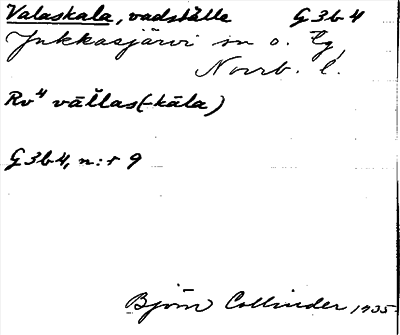 Valaskala, vadställe G3b4
Jukkasjärvi sn o. tg,
Norrb. l.
Rv⁴ vāl̆las(-kāla)
G3b4, n:r 9
Björn Collinder 1935